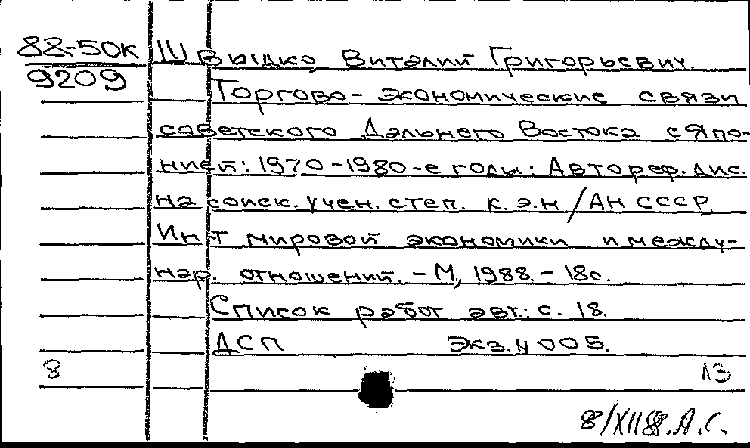 88-50к Швыдко, Виталий Григорьевич.
9209
Торгово-экономические связи
советского Дальнего Востока с Япо-
нией: 1970-1980-е годы: Автореф. дис.
на соиск. учен. степ. к.э.н/АН СССР
Ин-т мировой экономики и между-
нар. отношений. - М, 1988. - 18с.
Список работ авт.: с. 18.
ДСП экз. N 005.
8 13
8/XII 88. А.С.